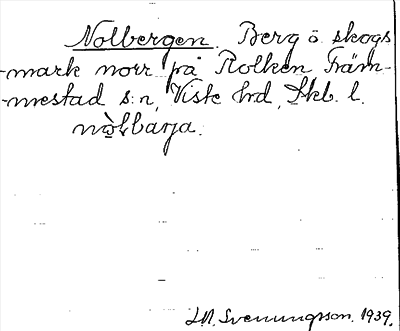 Nolbergen. Berg o. skogs
-mark norr på Rolken Främ-
-mestad s:n, Viste hrd, Skb. l.
J.A. Svenungsson. 1939.